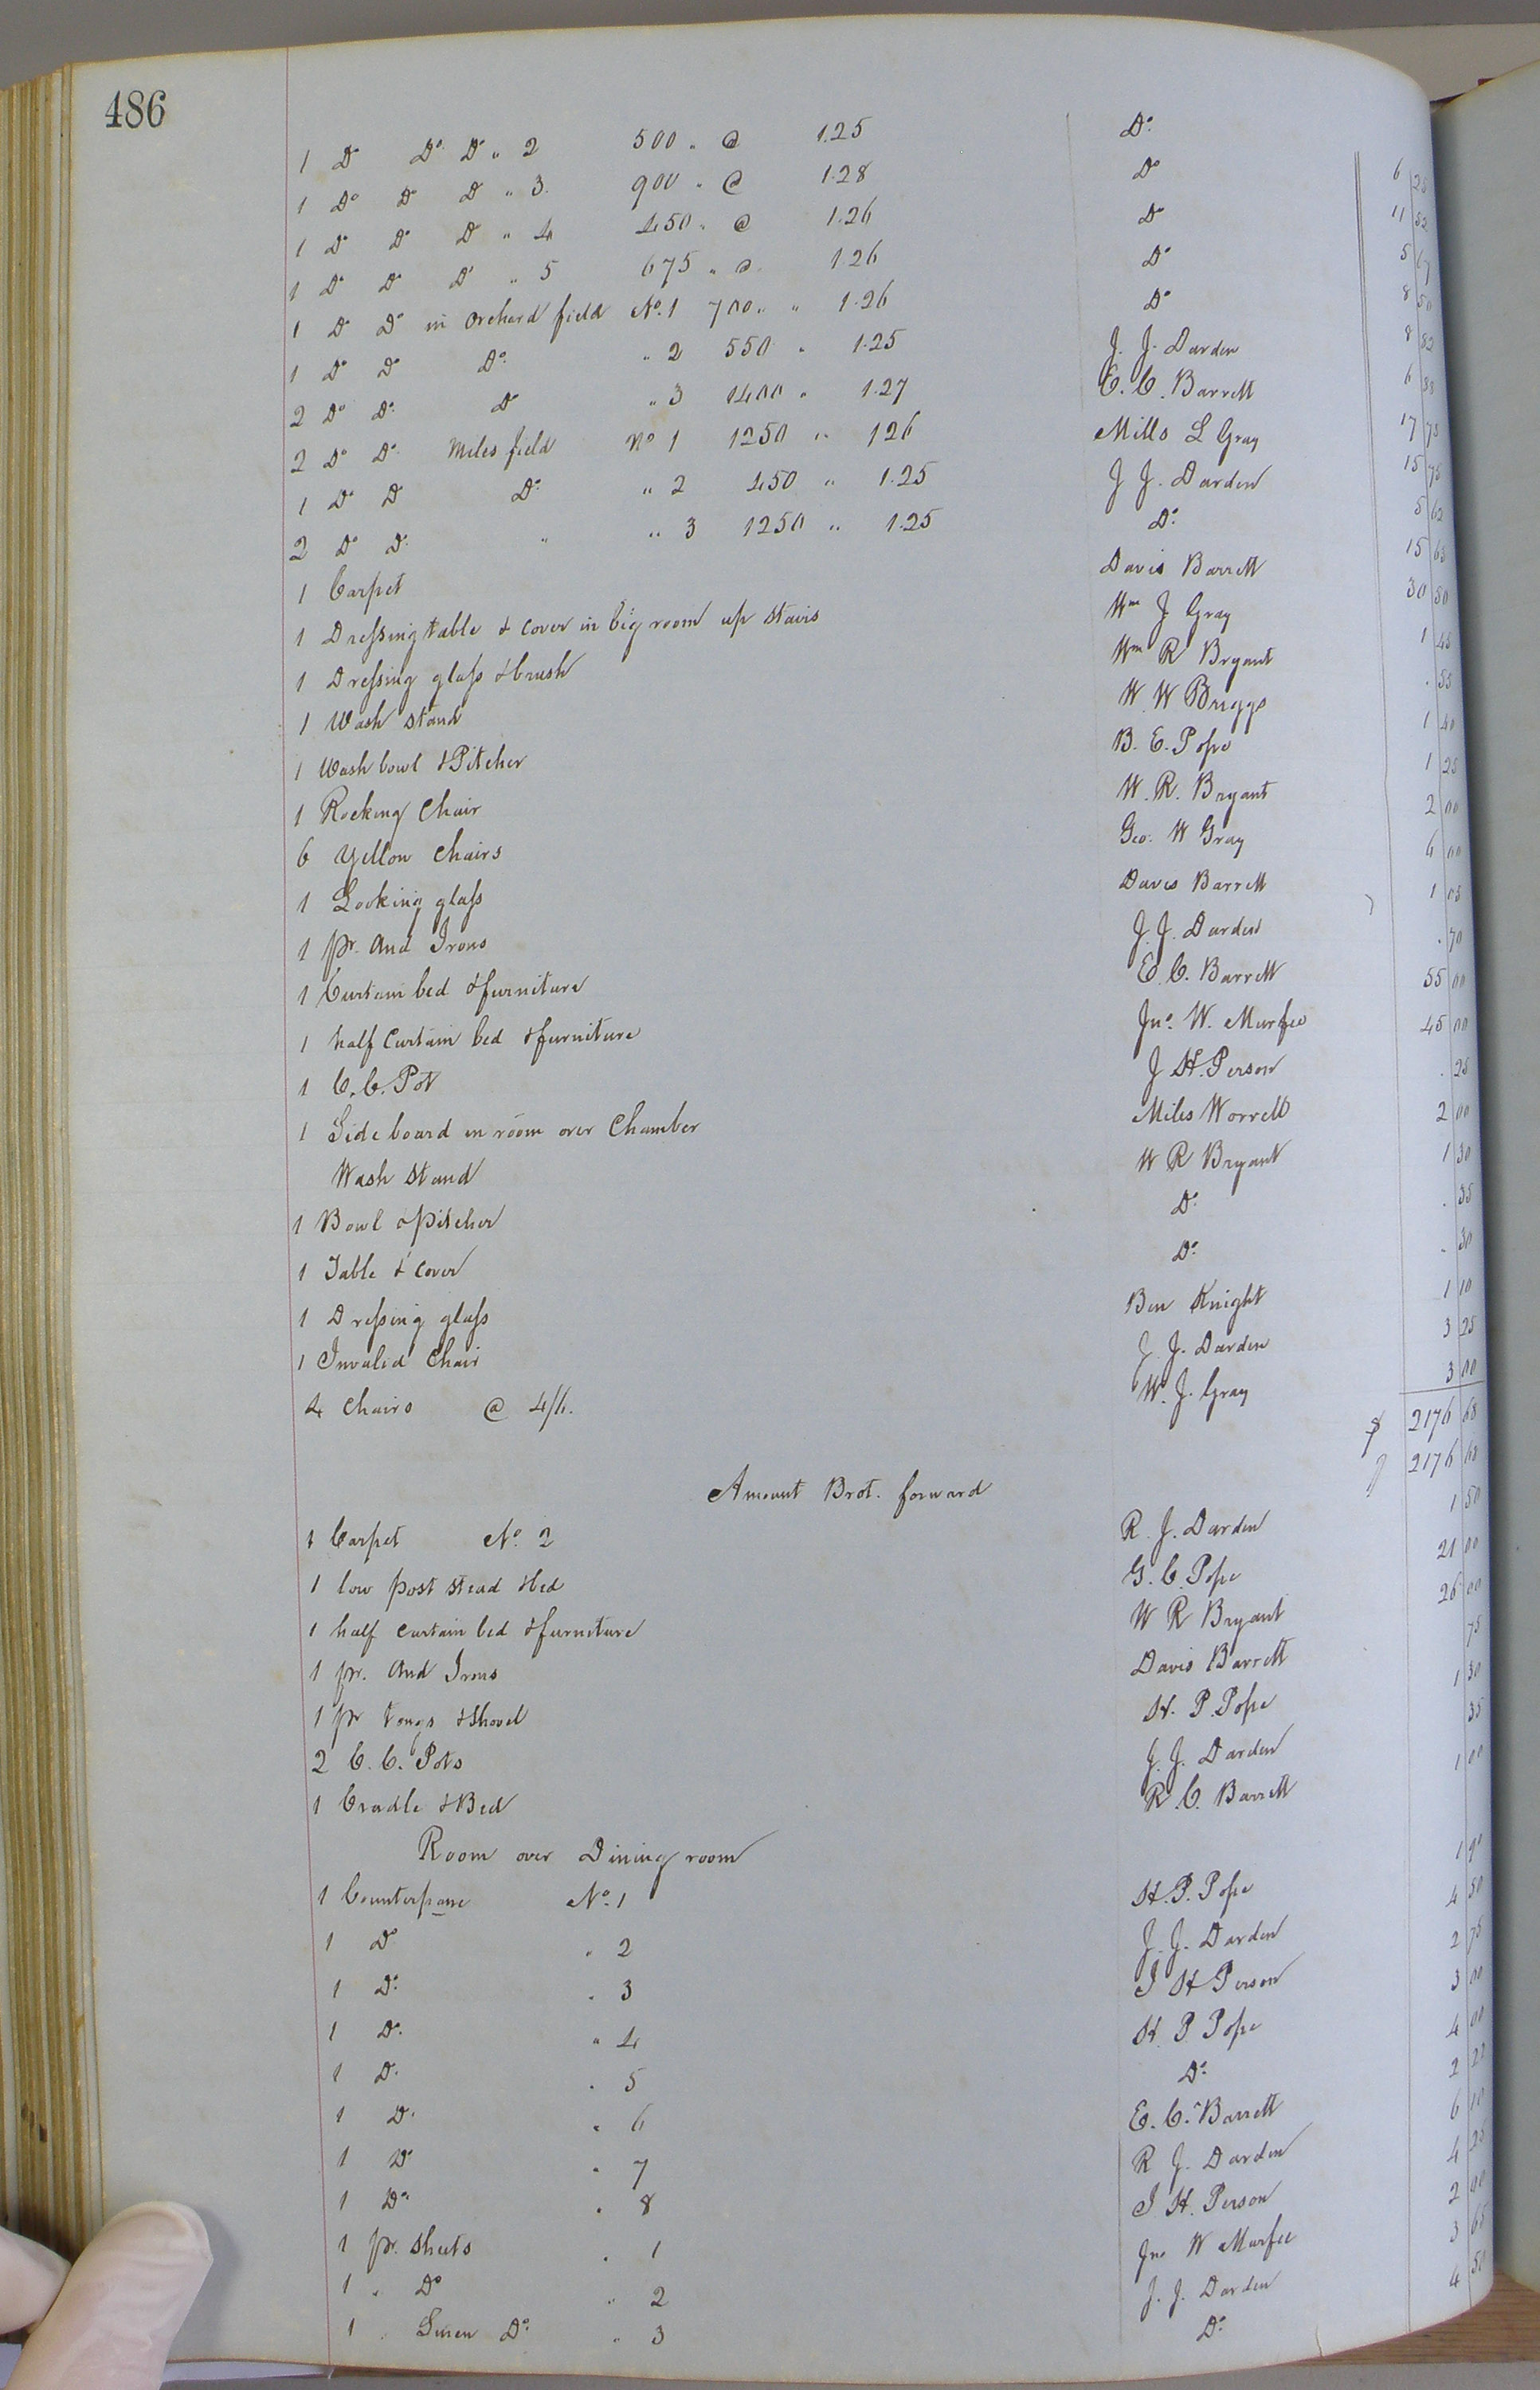 486
1 Do Do Do " 2 500 " @ 1.25 Do 6 25
1 Do Do Do " 3. 900 " @ 1.28 Do 11 52
1 Do Do Do " 4 450 " @ 1.26 Do 5 67
1 Do Do Do " 5 675 " @ 1.26 Do 8 50
1 Do Do in Orchard field No. 1 700 " " 1.26 Do 8 82
1 Do Do Do " 2 550 " 1.25 J. J. Darden 6 88
2 Do Do Do " 3 1400 " 1.27 E. C. Barrett 17 78
2 Do Do Miles field No 1 1250 " 126 Mills L Gray 15 75
1 Do Do Do " 2 450 " 1.25 J J. Darden 5 62
2 Do Do " " 3 1250 " 1.25 Do 15 63
1 Carpet Davis Barrett 30 50
1 Dressing table & cover in big room up stairs Wm J Gray 1 45
1 Dressing glass & brush Wm R Bryant . 55
1 Wash stand W W Briggs 1 40
1 Wash bowl & Pitcher B. E. Pope 1 25
1 Rocking Chair W. R. Bryant 2 00
6 Yellow Chairs Geo. W Gray 6 00
1 Looking glass Davis Barrett 1 05
1 pr. And Irons J. J. Darden . 70
1 Curtain bed & furniture E. C. Barrett 55 00
1 half Curtain bed & furniture Jno. W. Murfee 45 00
1 C. C. Pot J. H. Person . 25
1 Side board in room over Chamber Miles Worrell 2 00
Wash Stand W R Bryant 1 30
1 Bowl & Pitcher Do . 35
1 Table & Cover Do . 30
1 Dressing glass Ben Knight 1 10
1 Invalid Chair J. J. Darden 3 25
4 Chairs @ 4/6. W. J. Gray 3 00
$ 2176 68
Amount Brot. forward 2176 68
1 Carpet No. 2 R. J. Darden 1 50
1 low post stead & bed G. C. Pope 21 00
1 half Curtain bed & furniture W R Bryant 26 00
1 pr. And Irons Davis Barrett 75
1 pr tongs & Shovel H. P. Pope 1 30
2 C. C. Pots J. J. Darden 35
1 Cradle & Bed R. C. Barrett 1 00
Room over Dining room
1 Counterpane No. 1 H. P. Pope 1 90
1 Do " 2 J. J. Darden 4 50
1 Do " 3 J H Person 2 75
1 Do " 4 H. P. Pope 3 00
1 Do " 5 Do 4 00
1 Do " 6 E. C. Barrett 2 22
1 Do " 7 R J. Darden 6 10
1 Do " 8 J. H. Person 4 25
1 pr. Sheets " 1 Jno W Murfee 2 00
1 " Do " 2 J. J. Darden 3 65
1 " Linen Do " 3 Do 4 50